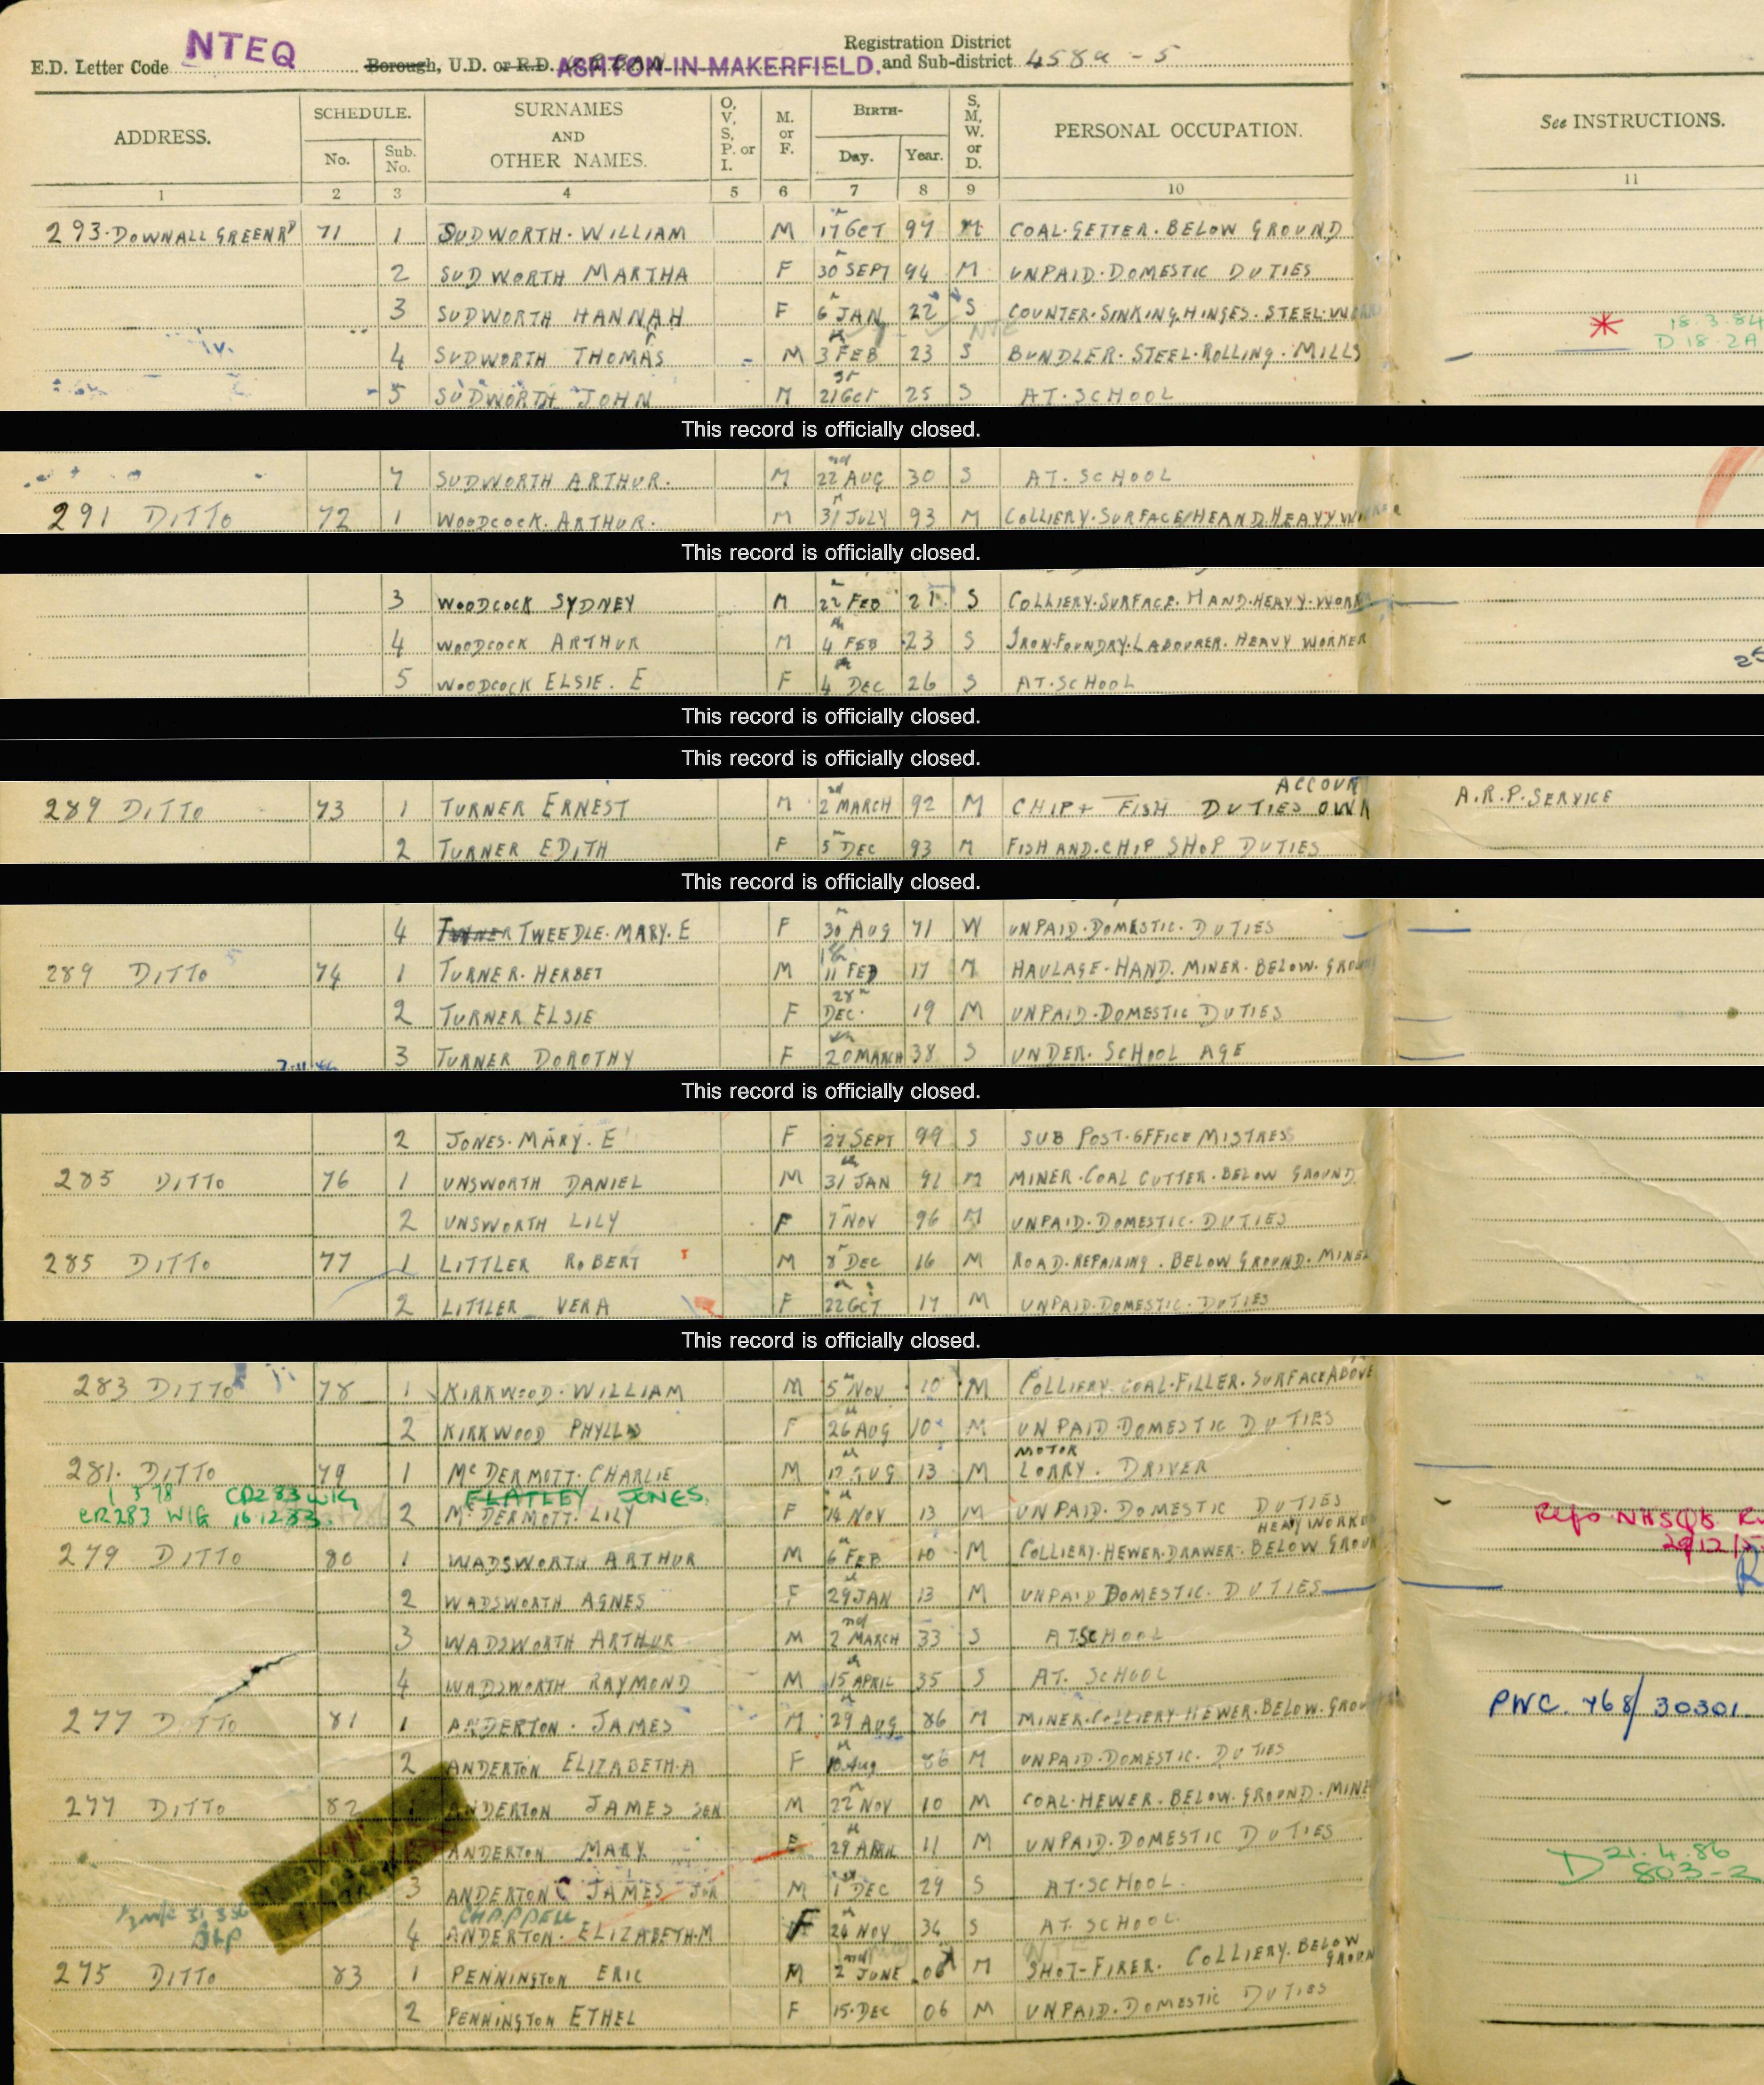 NTEQ
Registration District
E.D. Letter Code Borough, U.D. or R.D. ASHTON-IN-MAKERFIELD. and Sub-district 458a - 5
ADDRESS. SCHEDULE. No. Sub. No. SURNAMES AND OTHER NAMES. O, V, S, P. or I. M. or F. BIRTH- Day. Year. S, M, W. or D. PERSONAL OCCUPATION. See INSTRUCTIONS.
1 2 3 4 5 6 7 8 9 10 11
293. DOWNALL GREEN RD 71 1 SUDWORTH. WILLIAM M 17 OCT 97 M COAL. GETTER. BELOW GROUND
2 SUDWORTH MARTHA F 30 SEPT 94 M UNPAID. DOMESTIC DUTIES
3 SUDWORTH HANNAH F 6 JAN 22 S COUNTER. SINKING. HINGES. STEEL.
18.3.84
D 18.2A
4 SUDWORTH THOMAS M 3 FEB 23 S BUNDLER. STEEL. ROLLING. MILLS
5 SUDWORTH JOHN M 21 OCT 25 S AT. SCHOOL
This record is officially closed.
7 SUDWORTH ARTHUR. M 22nd AUG 30 S AT. SCHOOL
291 DITTO 72 1 WOODCOCK. ARTHUR. M 31 JULY 93 M COLLIERY. SURFACE/HEAND HEAVY WORKER
This record is officially closed.
3 WOODCOCK SYDNEY M 22 FEB 21 S COLLIERY. SURFACE. HAND. HEAVY. WORK
4 WOODCOCK ARTHUR M 4 FEB 23 S IRON. FOUNDRY. LABOURER. HEAVY WORKER
5 WOODCOCK ELSIE. E F 4 DEC 26 S AT. SCHOOL
This record is officially closed.
This record is officially closed.
289 DITTO 73 1 TURNER ERNEST M 2nd MARCH 92 M CHIP + FISH DUTIES OWN ACCOUN A.R.P. SERVICE
2 TURNER EDITH F 5 DEC 93 M FISH AND. CHIP SHOP DUTIES
This record is officially closed.
4 TURNER TWEEDLE. MARY. E F 30 AUG 71 W UNPAID. DOMESTIC. DUTIES
289 DITTO 74 1 TURNER. HERBET M 11 FEB 17 M HAULAGE. HAND. MINER. BELOW. GROUN
2 TURNER ELSIE F 28 DEC. 19 M UNPAID. DOMESTIC DUTIES
3 TURNER DOROTHY F 20 MARCH 38 S UNDER. SCHOOL AGE
This record is officially closed.
2 JONES. MARY. E F 27 SEPT 99 S SUB POST. OFFICE MISTRESS
285 DITTO 76 1 UNSWORTH DANIEL M 31 JAN 91 M MINER. COAL CUTTER. BELOW GROUND
2 UNSWORTH LILY F 7 NOV 96 M UNPAID. DOMESTIC. DUTIES
285 DITTO 77 1 LITTLER ROBERT M 8 DEC 16 M ROAD. REPAIRING. BELOW GROUND. MINER
2 LITTLER VERA F 22 OCT 17 M UNPAID. DOMESTIC. DUTIES
This record is officially closed.
283 DITTO 78 1 KIRKWOOD. WILLIAM M 5 NOV 10 M COLLIERY COAL. FILLER. SURFACE ABOVE
2 KIRKWOOD PHYLLIS F 26 AUG 10 M UNPAID. DOMESTIC DUTIES
281. DITTO 79 1 McDERMOTT. CHARLIE M 17 AUG 13 M MOTOR LORRY. DRIVER
CR283 WIG FLATLEY JONES.
CR283 WIG 16.12.53. 2 McDERMOTT. LILY F 14 NOV 13 M UNPAID. DOMESTIC DUTIES
279 DITTO 80 1 WADSWORTH ARTHUR M 6 FEB 10 M COLLIERY. HEWER. DRAWER. BELOW GROUN HEAVY WORKE
2 WADSWORTH AGNES F 29 JAN 13 M UNPAID DOMESTIC. DUTIES
3 WADSWORTH ARTHUR M 2nd MARCH 33 S AT SCHOOL
4 WADSWORTH RAYMOND M 15 APRIL 35 S AT. SCHOOL
PWC. 468/30301
277 DITTO 81 1 ANDERTON. JAMES M 29 AUG 86 M MINER. COLLIERY. HEWER. BELOW. GROUN
2 ANDERTON ELIZABETH. A F 10 Aug 86 M UNPAID. DOMESTIC. DUTIES
277 DITTO 82 1 ANDERTON JAMES SEN M 22 NOV 10 M COAL. HEWER. BELOW. GROUND. MINE
ANDERTON MARY F 29 APRIL 11 M UNPAID. DOMESTIC DUTIES
D 21.4.86
803-2
3 ANDERTON JAMES JUR M 1 DEC 29 S AT. SCHOOL.
CHAPPELL
4 ANDERTON. ELIZABETH. M F 24 NOV 34 S AT. SCHOOL.
275 DITTO 83 1 PENNINGTON ERIC M 2nd JUNE 06 M SHOT-FIRER. COLLIERY. BELOW GROUN
2 PENNINGTON ETHEL F 15. DEC 06 M UNPAID. DOMESTIC DUTIES